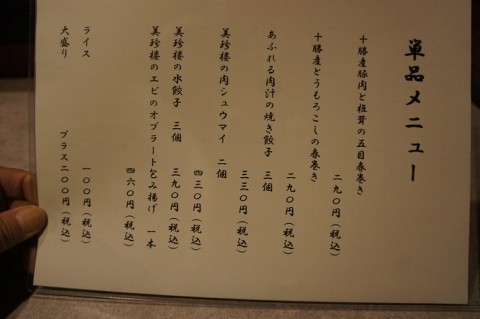 単品メニュー
十勝産豚肉と椎茸の五目春巻き
二九〇円（税込）
十勝産とうもろこしの春巻き
二九〇円（税込）
あふれる肉汁の焼き餃子 三個
三三〇円（税込）
美珍楼の肉シュウマイ 二個
四三〇円（税込）
美珍楼の水餃子 三個
三九〇円（税込）
美珍楼のエビのオブラート包み揚げ 一本
四六〇円（税込）
ライス
一〇〇円（税込）
大盛り
プラス二〇〇円（税込）